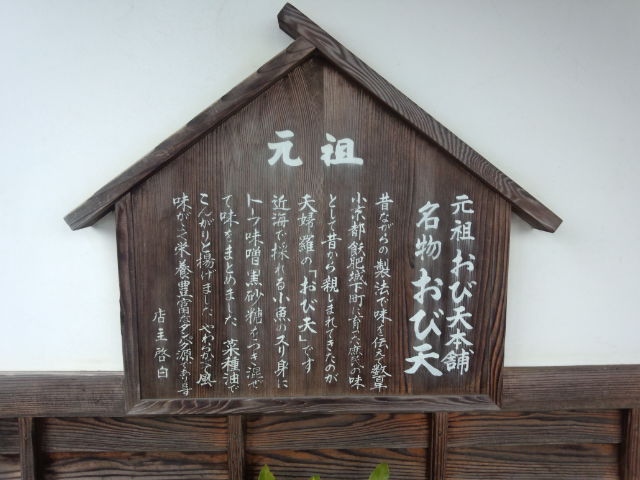 元祖
元祖 おび天本舗
名物 おび天
昔ながらの製法で味を伝え数百年
小京都飫肥城下町に育った庶民の味
として昔から親しまれてきたのが
天婦羅の「おび天」です
近海で採れる小魚のスリ身に
トーフ味噌黒砂糖をつき混ぜ
て味をまとめました 菜種油で
こんがりと揚げました やわらかくて風
味がよく栄養豊富なタンパク源であります
店主啓白